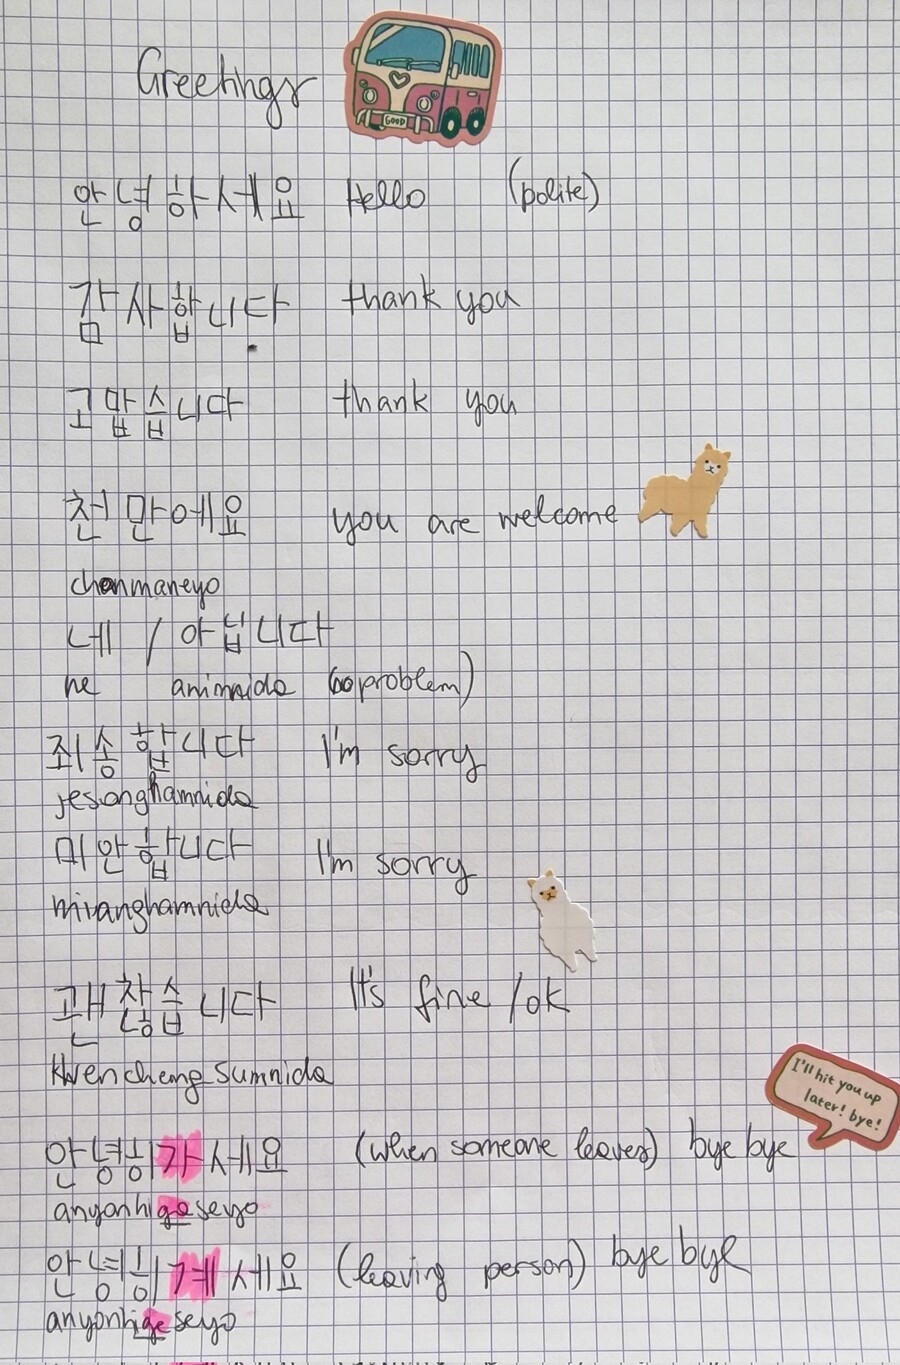 Greetings
GOOD
안녕하세요 Hello (polite)
감사합니다 thank you
고맙습니다 thank you
천만에요 you are welcome
chonmaneyo
네 / 아닙니다
ne animnida (no problem)
죄송합니다 I'm sorry
jesonghamnida
미안합니다 I'm sorry
mivanghamnida
괜찮습니다 It's fine / ok
kwenchengsumnida
I'll hit you up
later! bye!
안녕히가세요 (when someone leaves) bye bye
anyonhigaseyo
안녕히계세요 (leaving person) bye bye
anyonhigeseyo